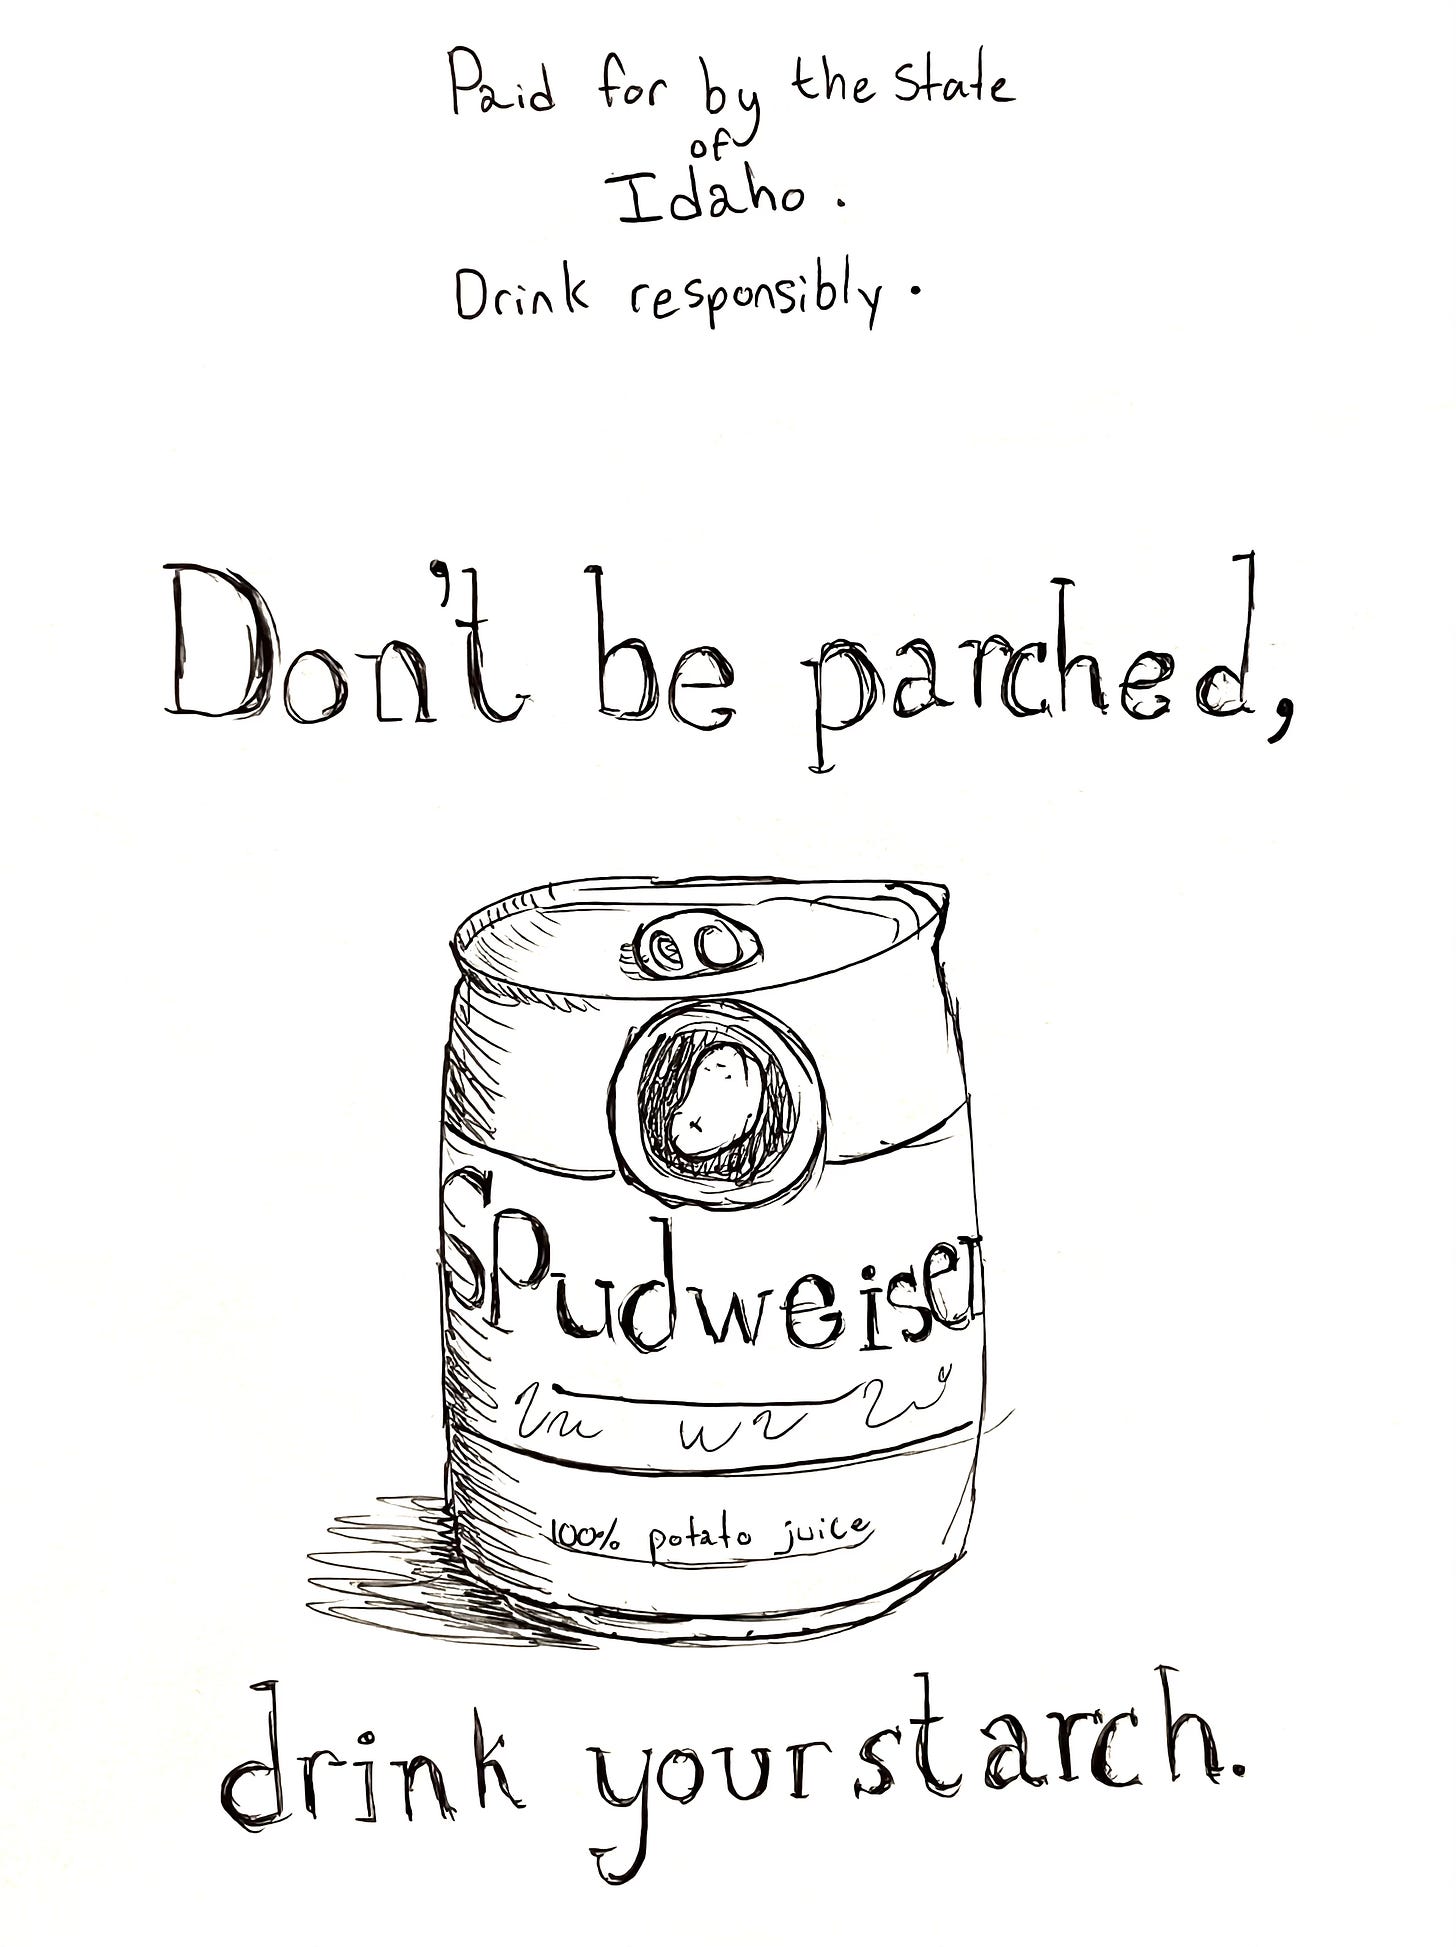 Paid for by the State
of
Idaho.
Drink responsibly.
Don't be parched,
Spudweiser
100% potato juice
drink your starch.